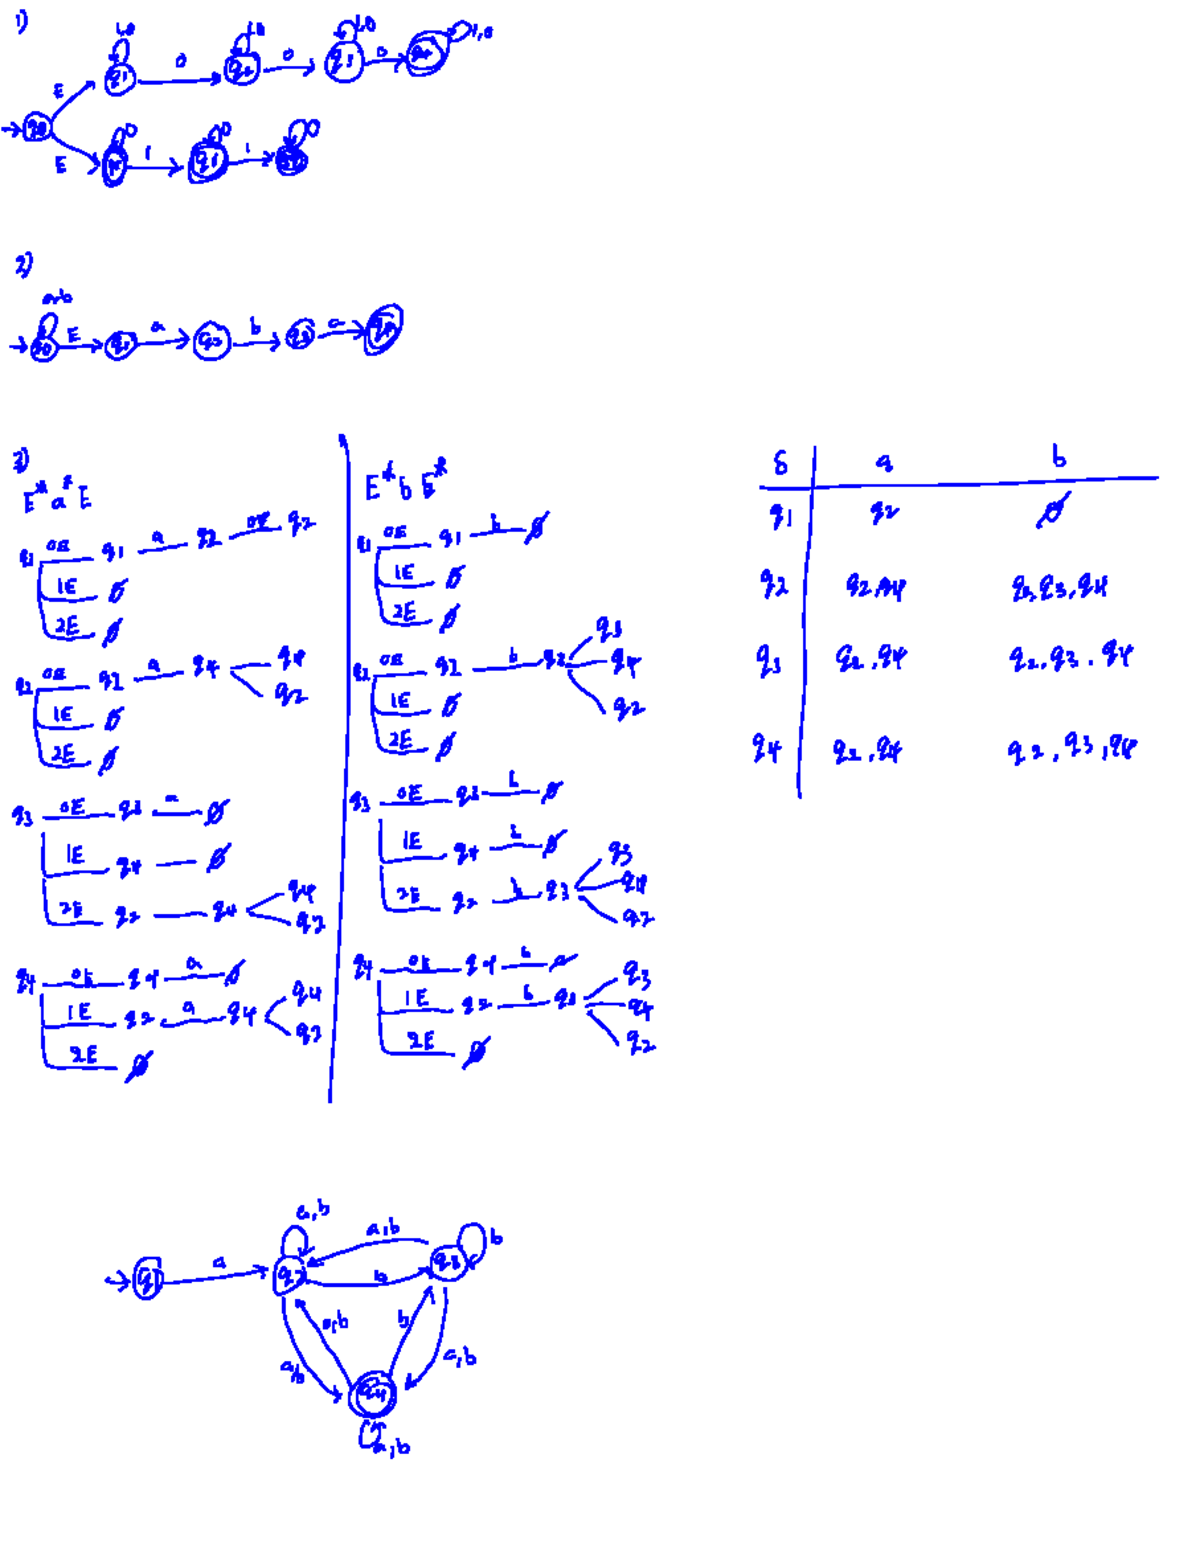 1)
1,0 1,0 1,0 1,0
q1 0 q2 0 q3 0
E
q0
E
0 0 0
1 q1 1
2)
a,b
q0 E q1 a q2 b q3 a
3)
E* a* E
q1 0E q1 a q2 0E q2
1E ∅
2E ∅
q2 0E q2 a q4 q4
q2
1E ∅
2E ∅
q3 0E q3 a ∅
1E q4 ∅
2E q2 q4 q4
q2
q4 0E q4 a ∅
1E q2 a q4 q4
q2
2E ∅
E* b E*
q1 0E q1 b ∅
1E ∅
2E ∅
q2 0E q2 b q3 q3
q4
q2
1E ∅
2E ∅
q3 0E q3 b ∅
1E q4 b ∅
2E q2 b q3 q3
q4
q2
q4 0E q4 b ∅
1E q2 b q3 q3
q4
q2
2E ∅
δ a b
q1 q2 ∅
q2 q2,q4 q2,q3,q4
q3 q2,q4 q2,q3,q4
q4 q2,q4 q2,q3,q4
a,b
a,b b
q1 a q2 b q3
a,b a,b b a,b
q4
a,b